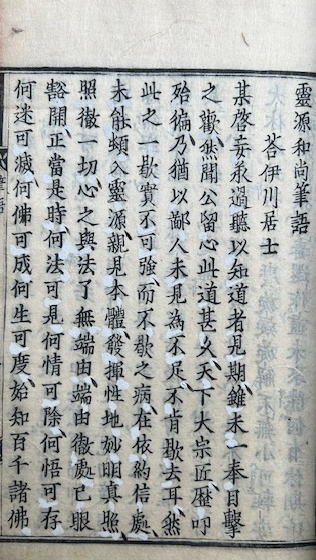 靈源和尚筆語
荅伊川居士
某啓妄承過聽以知道者見期雖未一奉目擊
之歡然聞公留心此道甚久天下大宗匠歴叩
殆徧乃猶以鄙人未見為不足不肯歇去耳然
此之一歇實不可強而不歇之病在依約信處
未能頓入靈源親見本體發揮性地妙明真照
照徹一切心之與法了無端由端由徹處己眼
豁開正當是時何法可見何情可除何悟可存
何迷可滅何佛可成何生可度始知百千諸佛
筆語